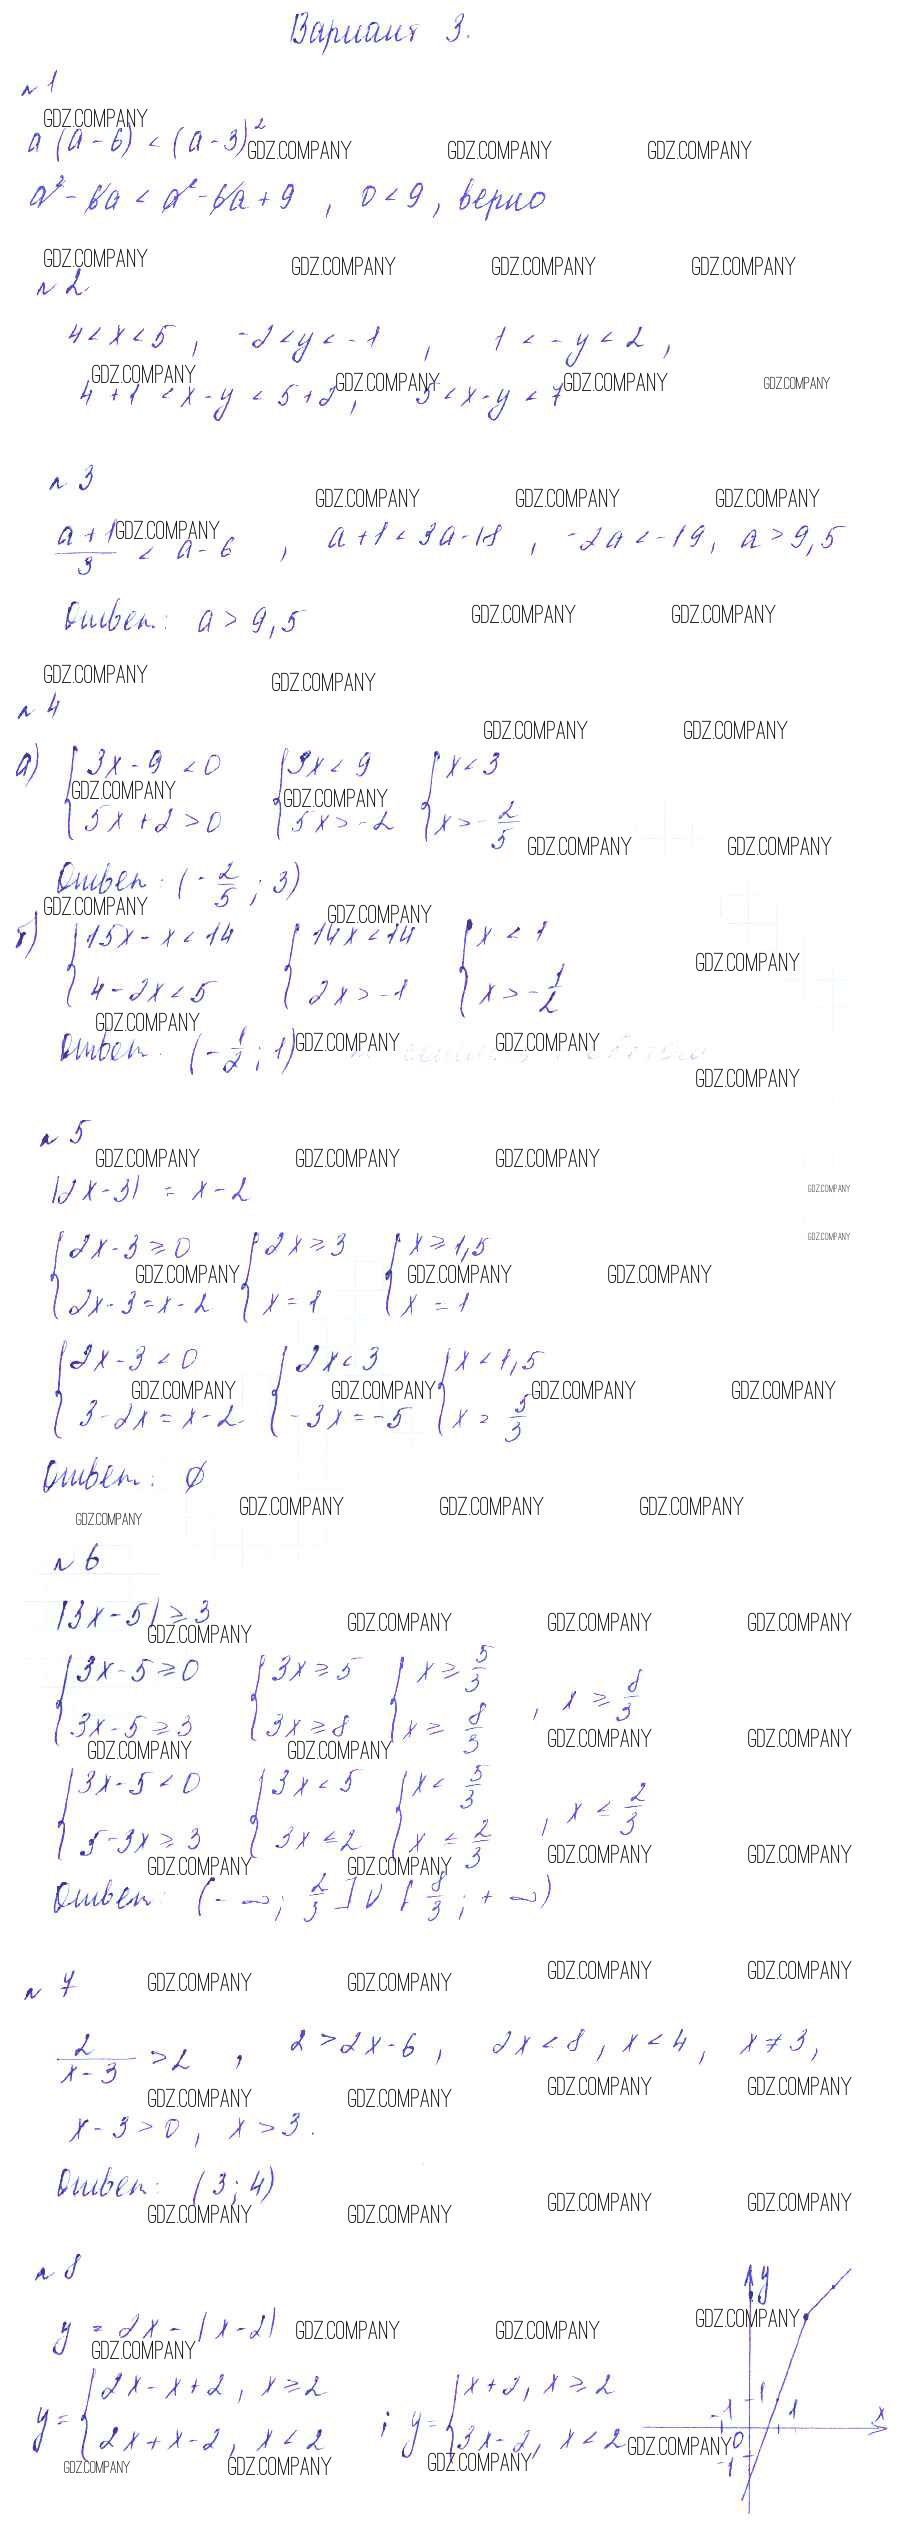 Вариант 3.
№1
GDZ.COMPANY
a(a-6) < (a-3)²
GDZ.COMPANY GDZ.COMPANY GDZ.COMPANY
a²-6a < a²-6a+9, 0<9, верно
GDZ.COMPANY GDZ.COMPANY GDZ.COMPANY GDZ.COMPANY
№2
4<x<5, -2<y<-1, 1<-y<2,
GDZ.COMPANY GDZ.COMPANY GDZ.COMPANY GDZ.COMPANY
4+1<x-y<5+2, 5<x-y<7
№3
GDZ.COMPANY GDZ.COMPANY GDZ.COMPANY
GDZ.COMPANY
(a+1)/3 < a-6, a+1<3a-18, -2a<-19, a>9,5
Ответ: a>9,5
GDZ.COMPANY GDZ.COMPANY
GDZ.COMPANY GDZ.COMPANY
№4
GDZ.COMPANY GDZ.COMPANY
а) {3x-9<0 {3x<9 {x<3
GDZ.COMPANY GDZ.COMPANY
{5x+2>0 {5x>-2 {x>-2/5
GDZ.COMPANY GDZ.COMPANY
Ответ: (-2/5; 3)
GDZ.COMPANY GDZ.COMPANY
б) {15x-x<14 {14x<14 {x<1
GDZ.COMPANY
{4-2x<5 {2x>-1 {x>-1/2
GDZ.COMPANY
Ответ: (-1/2; 1)
GDZ.COMPANY GDZ.COMPANY
GDZ.COMPANY
№5
GDZ.COMPANY GDZ.COMPANY GDZ.COMPANY
|2x-3| = x-2
GDZ.COMPANY
GDZ.COMPANY
{2x-3≥0 {2x≥3 {x≥1,5
GDZ.COMPANY GDZ.COMPANY GDZ.COMPANY
{2x-3=x-2 {x=1 {x=1
{2x-3<0 {2x<3 {x<1,5
GDZ.COMPANY GDZ.COMPANY GDZ.COMPANY GDZ.COMPANY
{3-2x=x-2 {-3x=-5 {x=5/3
Ответ: ∅
GDZ.COMPANY GDZ.COMPANY GDZ.COMPANY
GDZ.COMPANY
№6
|3x-5|≥3
GDZ.COMPANY GDZ.COMPANY GDZ.COMPANY GDZ.COMPANY
{3x-5≥0 {3x≥5 {x≥5/3
{3x-5≥3 {3x≥8 {x≥8/3, x≥8/3
GDZ.COMPANY GDZ.COMPANY GDZ.COMPANY GDZ.COMPANY
{3x-5<0 {3x<5 {x<5/3
{5-3x≥3 {3x≤2 {x≤2/3, x≤2/3
GDZ.COMPANY GDZ.COMPANY GDZ.COMPANY GDZ.COMPANY
Ответ: (-∞; 2/3]∪[8/3; +∞)
№7
GDZ.COMPANY GDZ.COMPANY GDZ.COMPANY GDZ.COMPANY
2/(x-3) >2, 2>2x-6, 2x<8, x<4, x≠3,
GDZ.COMPANY GDZ.COMPANY GDZ.COMPANY GDZ.COMPANY
x-3>0, x>3.
Ответ: (3; 4)
GDZ.COMPANY GDZ.COMPANY GDZ.COMPANY GDZ.COMPANY
№8
y
GDZ.COMPANY
y = 2x-|x-2|
GDZ.COMPANY GDZ.COMPANY
GDZ.COMPANY
y= {2x-x+2, x≥2 ; y= {x+2, x≥2
{2x+x-2, x<2 {3x-2, x<2
-1 1 1 x
0
-1
GDZ.COMPANY
GDZ.COMPANY GDZ.COMPANY GDZ.COMPANY